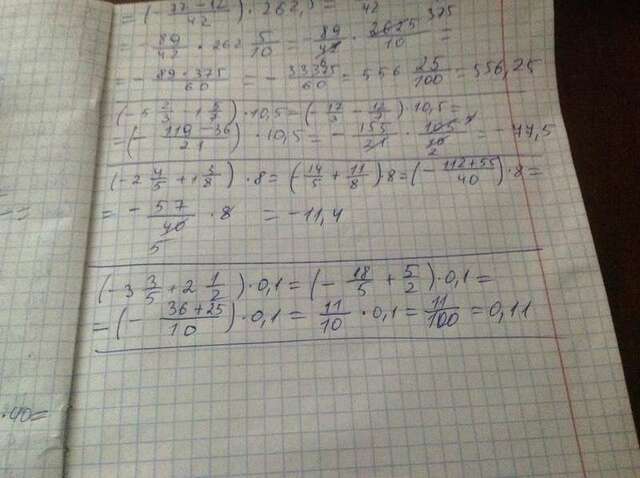 = (- 37-12/42) · 262,5 = 42
= - 89/42 · 262 5/10 = - 89/42 · 2625/10 375 =
= - 89·375/60 = - 33375/60 = 556 25/100 = 556,25
(-5 2/3 - 1 5/7) · 10,5 = (- 17/3 - 12/7) · 10,5 =
= (- 119-36/21) · 10,5 = - 155/21 · 105/10 2 = -77,5
(-2 4/5 + 1 3/8) · 8 = (- 14/5 + 11/8) · 8 = (- 112+55/40) · 8 =
= - 57/40 · 8 = -11,4
5
(-3 3/5 + 2 1/2) · 0,1 = (- 18/5 + 5/2) · 0,1 =
= (- 36+25/10) · 0,1 = 11/10 · 0,1 = 11/100 = 0,11
·40=